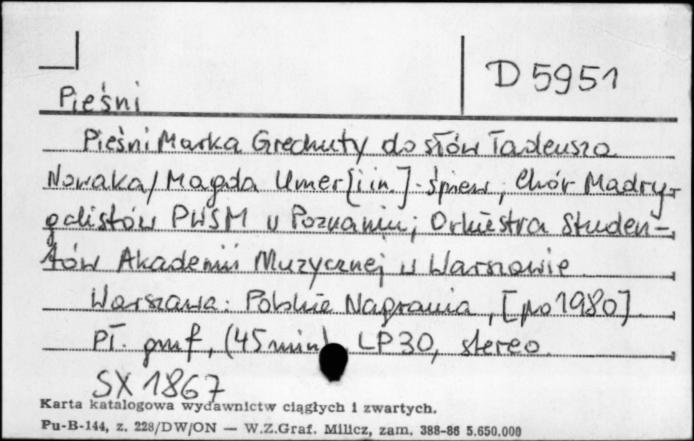 D 5951
Pieśni
Pieśni Marka Grechuty do słów Tadeusza
Nowaka / Magda Umer [i in.] - śpiew ; Chór Madry-
galistów PWSM w Poznaniu ; Orkiestra Studen-
tów Akademii Muzycznej w Warszawie
Warszawa : Polskie Nagrania, [po 1980].
Pł. gmf, (45 min), LP30, stereo
SX 1867
Karta katalogowa wydawnictw ciągłych i zwartych.
Pu-B-144, z. 228/DW/ON — W.Z.Graf. Milicz, zam. 388-86 5.650.000